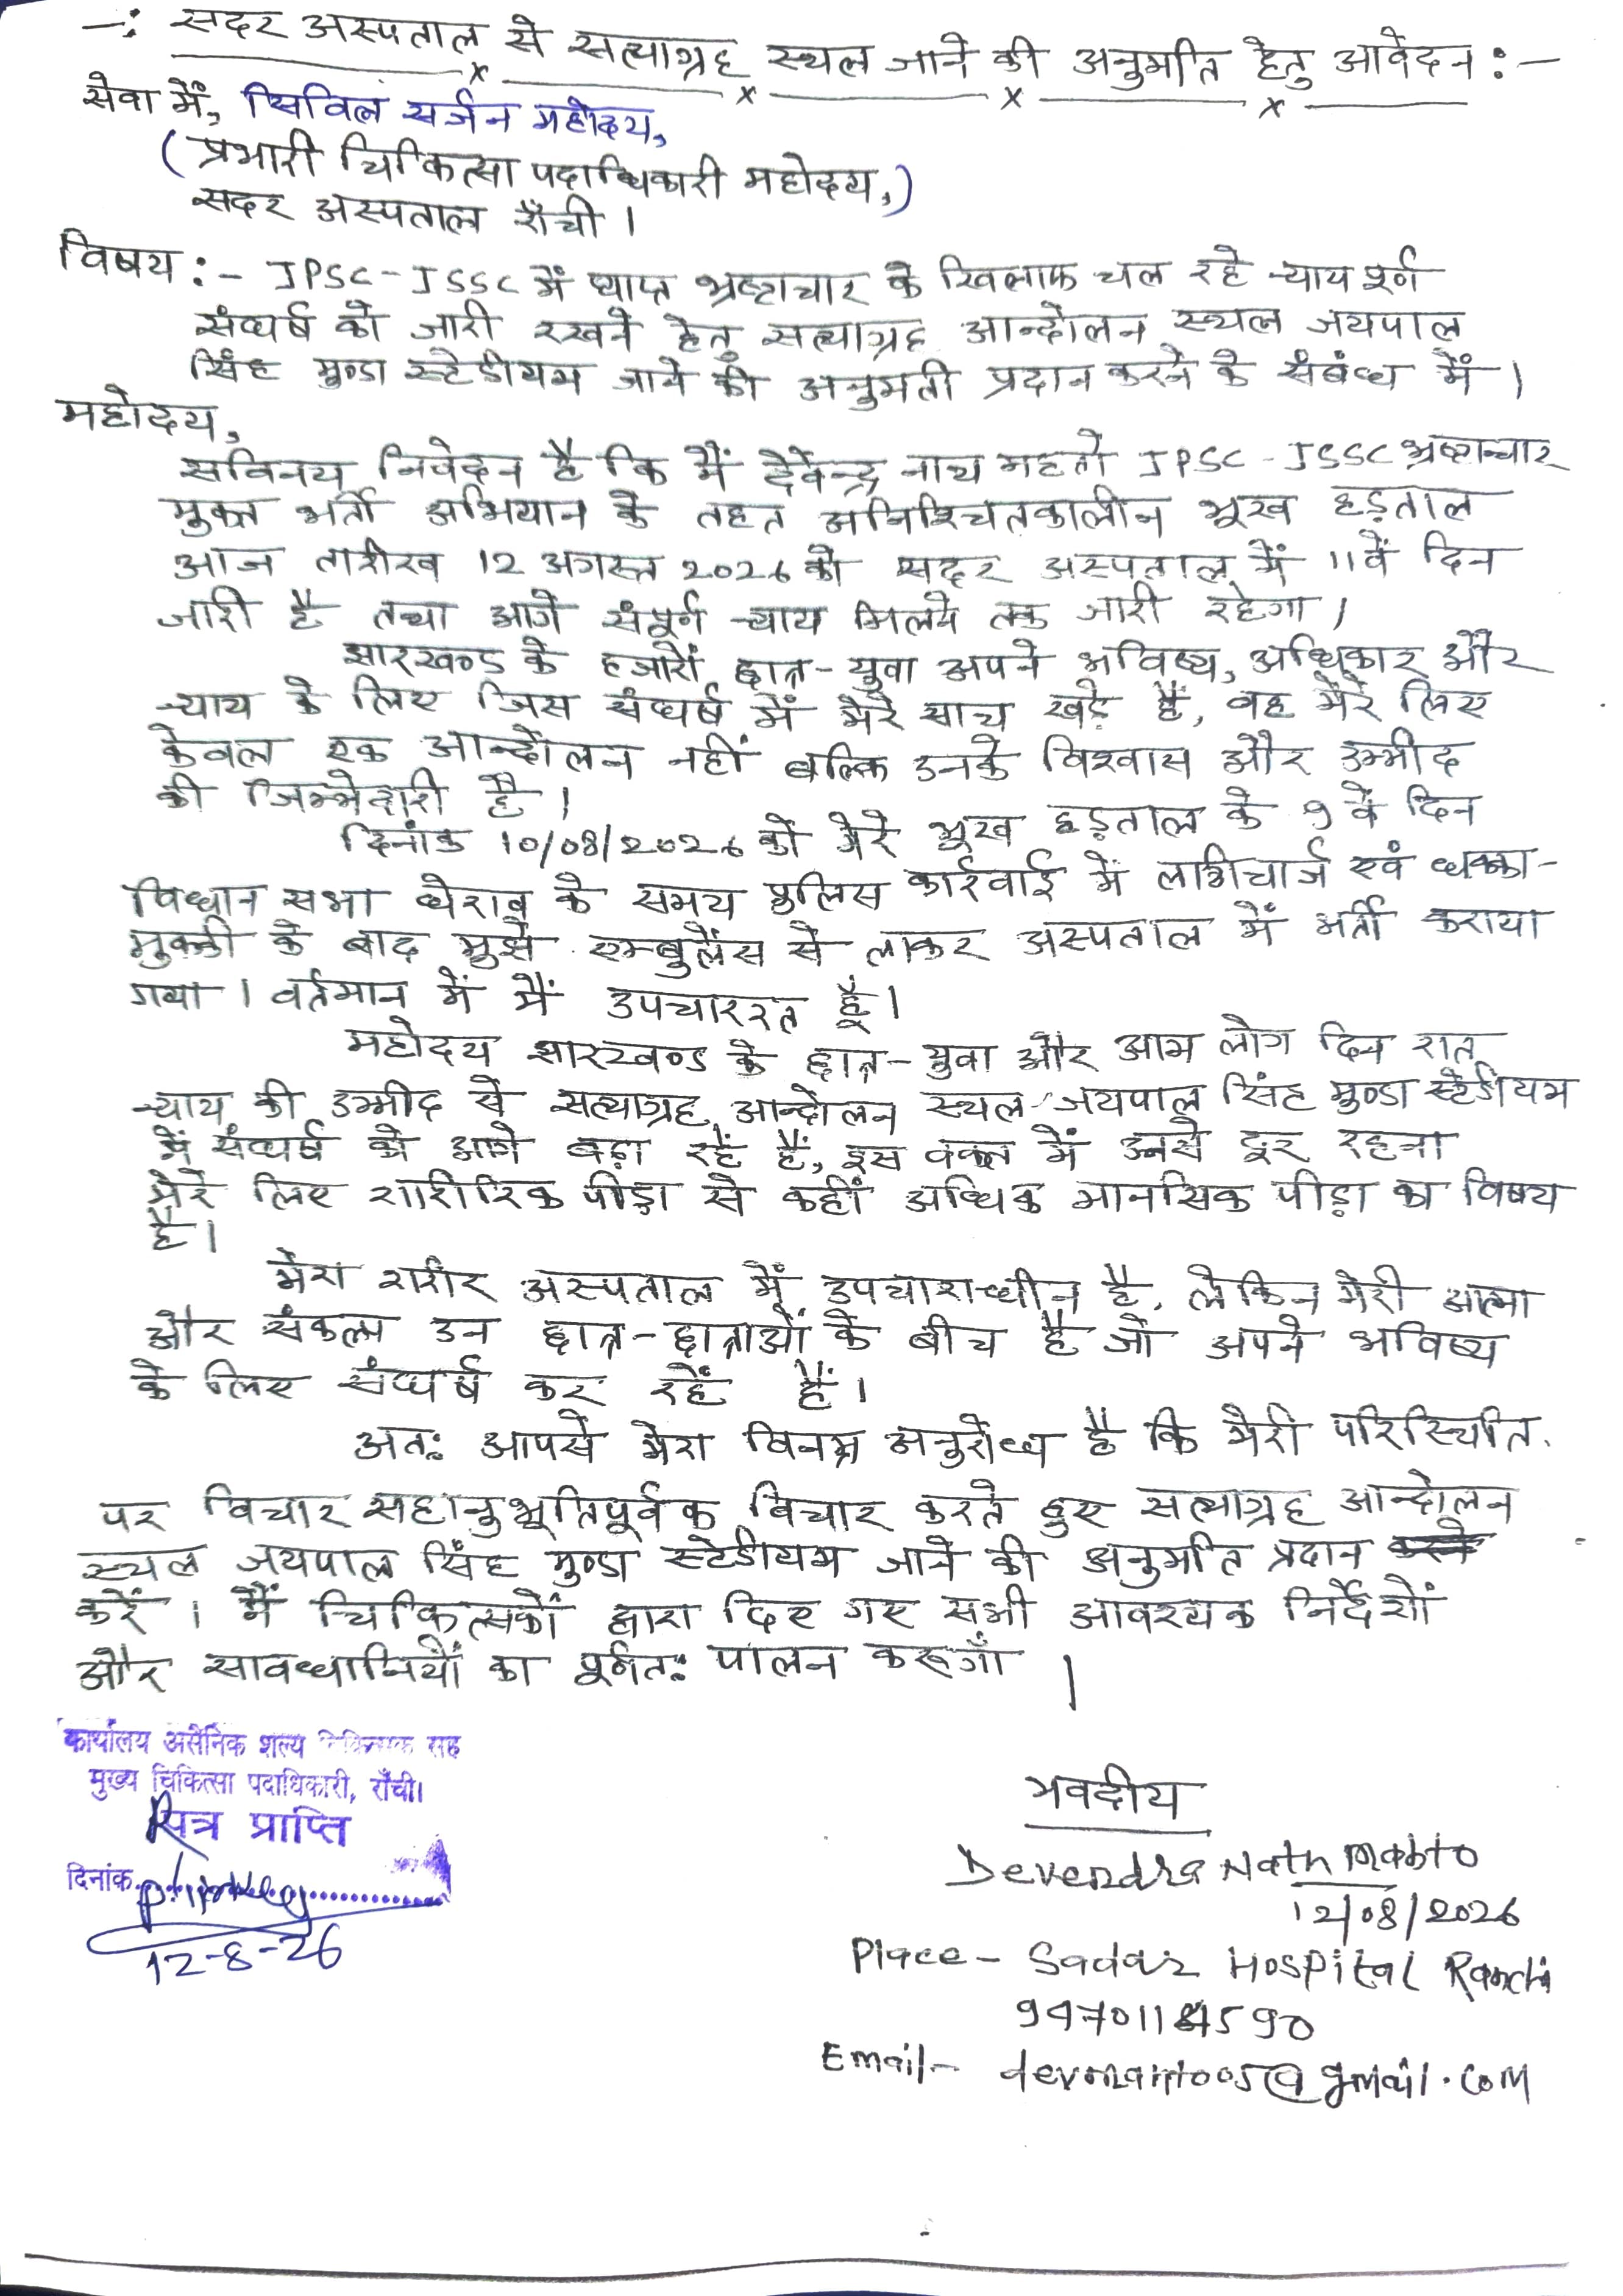 -: सदर अस्पताल से सत्याग्रह स्थल जाने की अनुमति हेतु आवेदन :-
सेवा में, सिविल सर्जन महोदय,
(प्रभारी चिकित्सा पदाधिकारी महोदय,)
सदर अस्पताल राँची।
विषय :- JPSC-JSSC में व्याप्त भ्रष्टाचार के खिलाफ चल रहे न्याय पूर्ण
संघर्ष को जारी रखने हेतु सत्याग्रह आन्दोलन स्थल जयपाल
सिंह मुण्डा स्टेडीयम जाने की अनुमती प्रदान करने के संबंध में।
महोदय,
सविनय निवेदन है कि मैं देवेन्द्र नाथ महतो JPSC-JSSC भ्रष्टाचार
मुक्त भर्ती अभियान के तहत अनिश्चितकालीन भूख हड़ताल
आज तारीख 12 अगस्त 2026 को सदर अस्पताल में 11वें दिन
जारी है तथा आगे संपूर्ण न्याय मिलने तक जारी रहेगा।
झारखण्ड के हजारों छात्र-युवा अपने भविष्य, अधिकार और
न्याय के लिए जिस संघर्ष में मेरे साथ खड़े हैं, वह मेरे लिए
केवल एक आन्दोलन नहीं बल्कि उनके विश्वास और उम्मीद
की जिम्मेदारी है।
दिनांक 10/08/2026 को मेरे भूख हड़ताल के 9 वें दिन
विधान सभा घेराव के समय पुलिस कार्रवाई में लाठीचार्ज एवं धक्का-
मुक्की के बाद मुझे एम्बुलेंस से लाकर अस्पताल में भर्ती कराया
गया। वर्तमान में मैं उपचाररत हूँ।
महोदय झारखण्ड के छात्र-युवा और आम लोग दिन रात
न्याय की उम्मीद से सत्याग्रह आन्दोलन स्थल जयपाल सिंह मुण्डा स्टेडीयम
में संघर्ष को आगे बढ़ा रहें हैं, इस वक्त में उनसे दूर रहना
मेरे लिए शारीरिक पीड़ा से कहीं अधिक मानसिक पीड़ा का विषय
है।
मेरा शरीर अस्पताल में उपचाराधीन है, लेकिन मेरी आत्मा
और संकल्प उन छात्र-छात्राओं के बीच है जो अपने भविष्य
के लिए संघर्ष कर रहें हैं।
अतः आपसे मेरा विनम्र अनुरोध है कि मेरी परिस्थिति
पर विचार सहानुभूतिपूर्वक विचार करते हुए सत्याग्रह आन्दोलन
स्थल जयपाल सिंह मुण्डा स्टेडीयम जाने की अनुमति प्रदान
करें। मैं चिकित्सकों द्वारा दिए गए सभी आवश्यक निर्देशों
और सावधानियों का पूर्णतः पालन करूगाँ।
कार्यालय असैनिक शल्य चिकित्सक सह
मुख्य चिकित्सा पदाधिकारी, राँची।
पत्र प्राप्ति
दिनांक
12-8-26
भवदीय
Devendra Nath Mahto
12/08/2026
Place - Sadar Hospital Ranchi
Email-